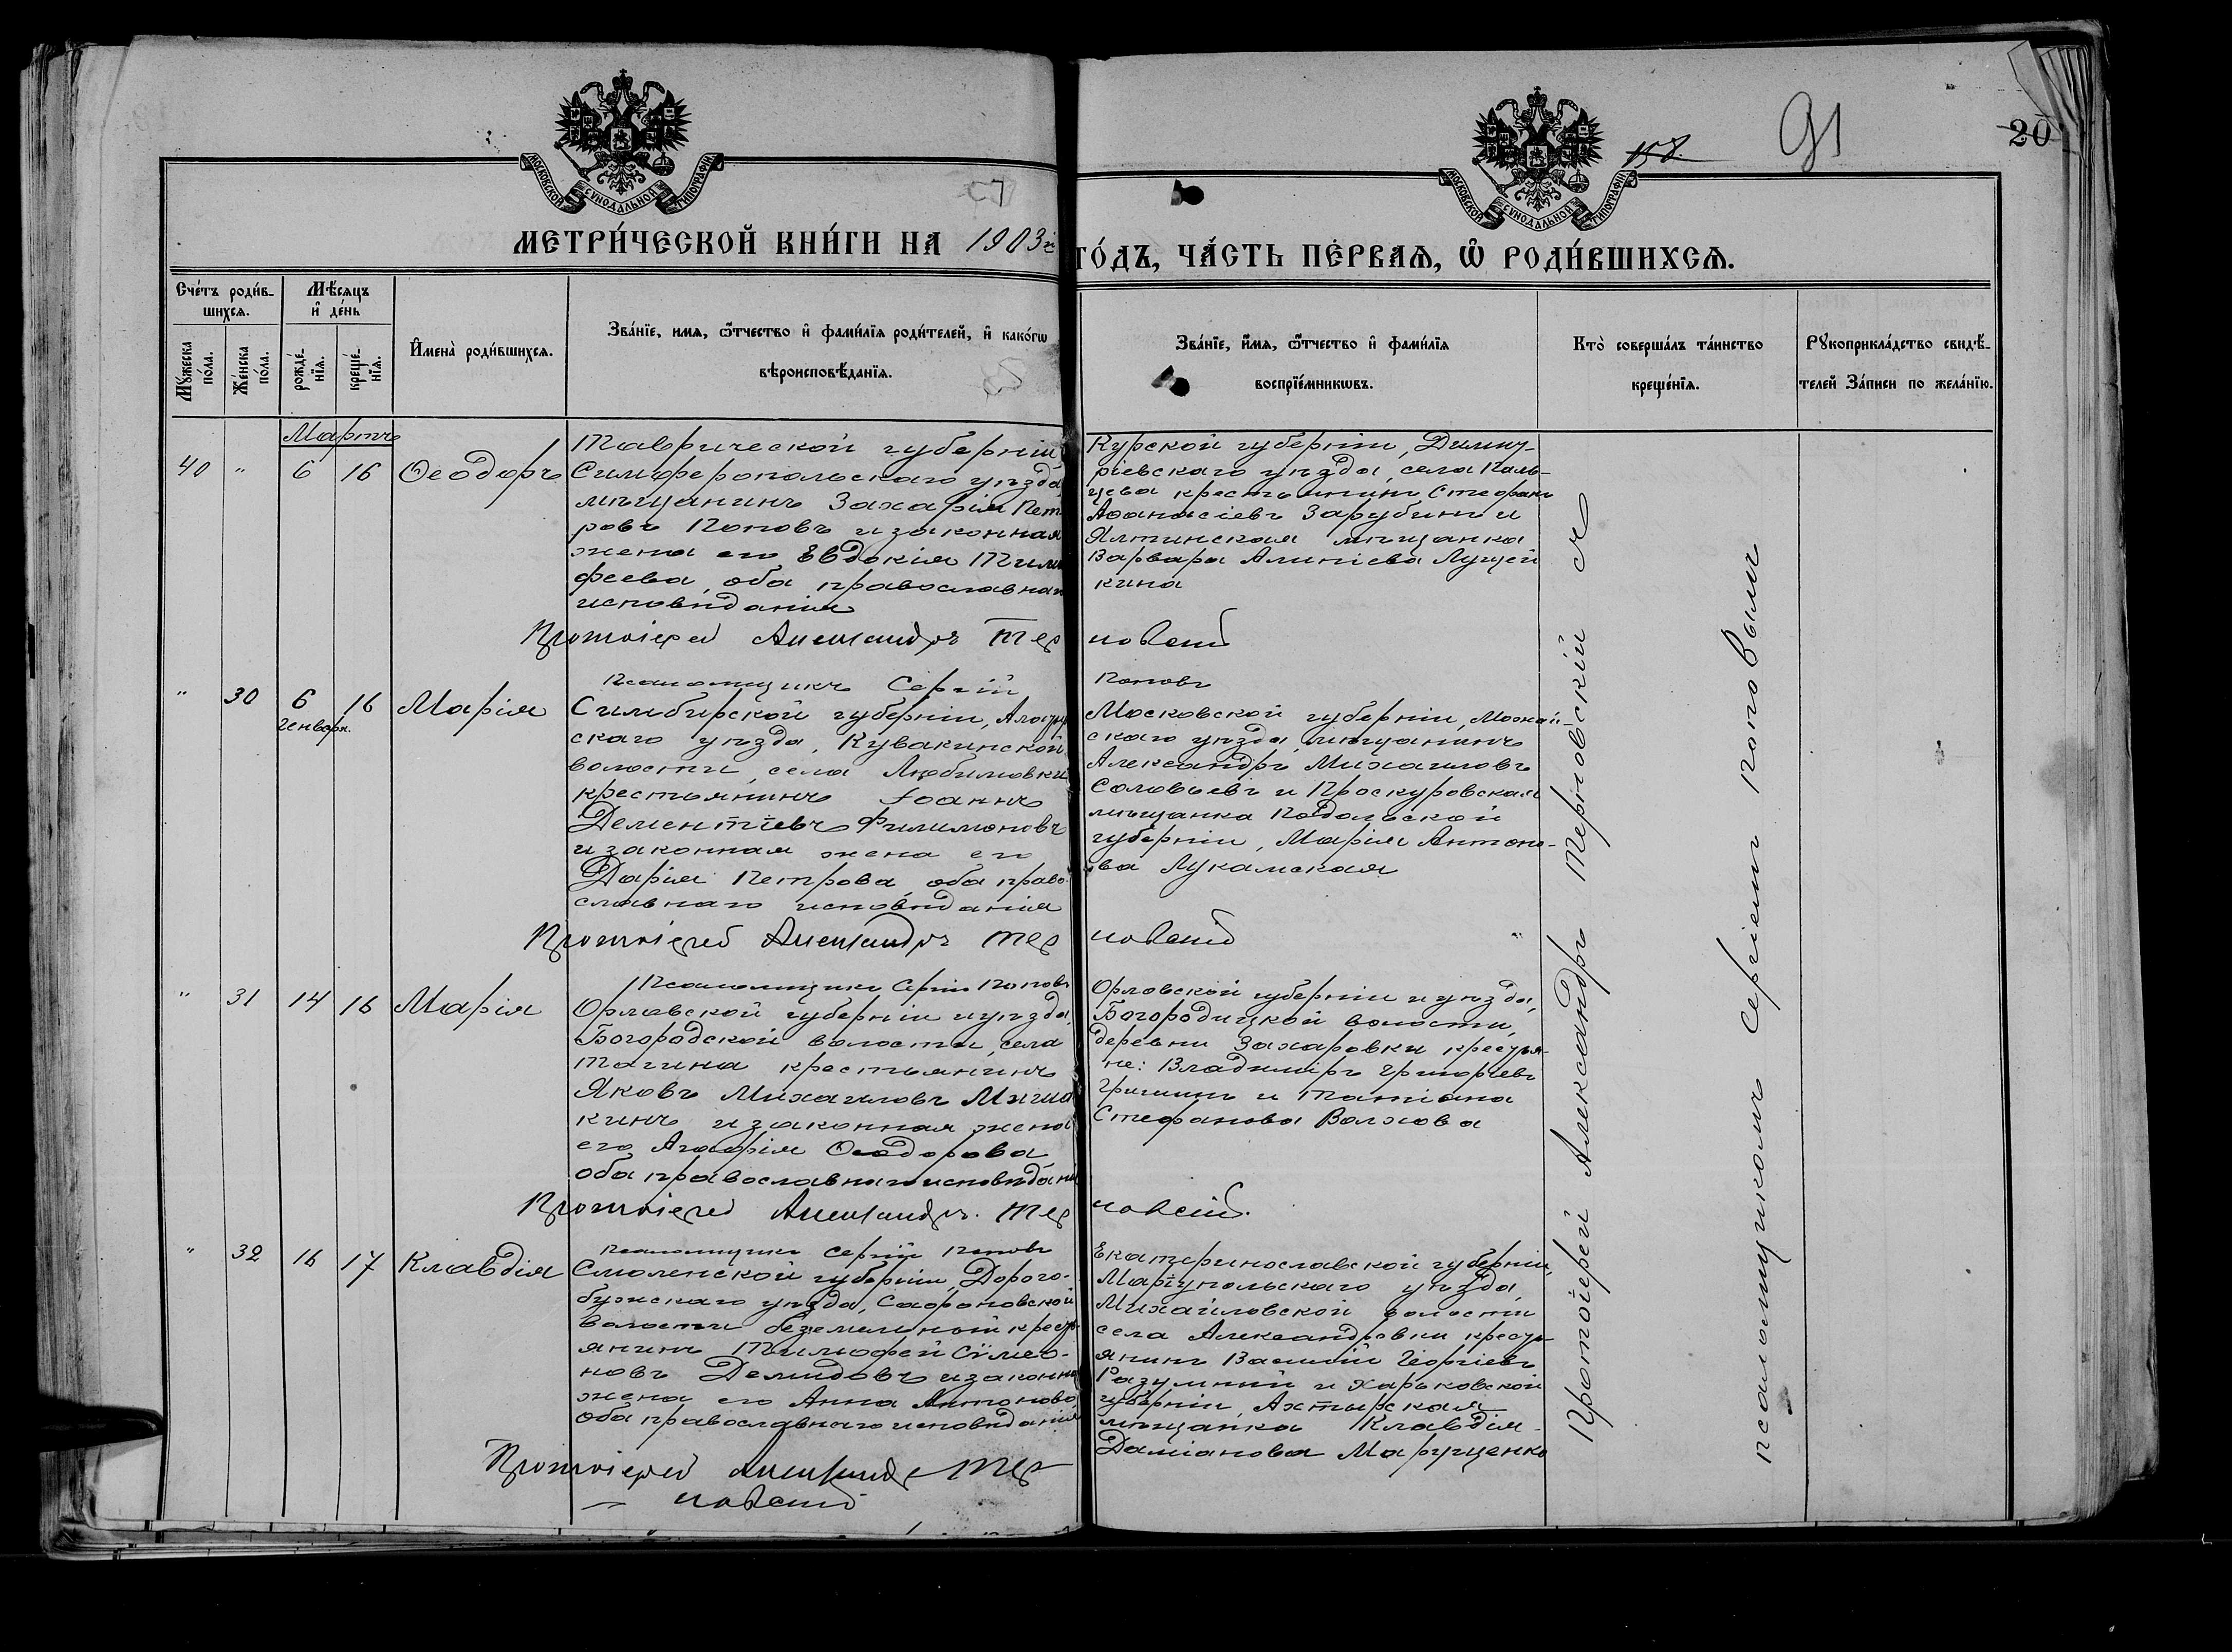 МОСКОВСКОЙ СѴНОДАЛЬНОЙ ТИПОГРАФІИ
МОСКОВСКОЙ СѴНОДАЛЬНОЙ ТИПОГРАФІИ
158.
91
20
МЕТРИ́ЧЕСКОЙ КНИ́ГИ НА 1903 г.
ГО́ДЪ, ЧА́СТЬ ПЕ́РВАЯ, Ѡ РОДИ́ВШИХСЯ.
Сче́тъ роди́в-
шихся.
Му́жеска
по́ла.
Же́нска
по́ла.
Мѣ́сяцъ
и де́нь
рожде́-
нїя.
креще́-
нїя.
И́мена̀ роди́вшихся.
Зва́нїе, имя, ѻтчество и фами́лїя роди́телей, и како́гѡ
вѣроисповѣ́данїя.
Зва́нїе, и́мя, ѻтчество и фами́лїя
воспрїе́мникѡвъ.
Кто̀ соверша́лъ та́инство
креще́нїя.
Рукоприкла́дство свидѣ́-
телей За́писи по жела́нїю.
Мартъ
40 " 6 16 Ѳеодоръ
Таврической губерніи
Симферопольскаго уѣзда
мѣщанинъ Захарія Пет
ровъ Поповъ и законная
жена его Евдокія Тимо
феева, оба православнаго
исповѣданія
Курской губерніи, Димит-
ріевскаго уѣзда, села Каль-
цева крестьянинъ Стефанъ
Аѳанасіевъ Зарубинъ и
Ялтинская мѣщанка
Варвара Алипіева Лущей
кина
Протоіерей Александръ Тер новскій
Псаломщикъ Сергій Поповъ
" 30 6 16 Марія
Генваря.
Симбирской губерніи, Алатыр
скаго уѣзда, Кувакинской
волости, села Любимовки
крестьянинъ Іоаннъ
Дементіевъ Филимоновъ
и законная жена его
Дарія Петрова, оба право-
славнаго исповѣданія
Московской губерніи, Можай-
скаго уѣзда, мѣщанинъ
Александръ Михаиловъ
Соловьевъ и Проскуровская
мѣщанка Подольской
губерніи, Марія Антоно-
ва Лукамская
Протоіерей Александръ Тер новскій
Псаломщикъ Сергій Поповъ
" 31 14 16 Марія
Орловской губерніи и уѣзда,
Богородской волости, села
Тагина крестьянинъ
Яковъ Михаиловъ
кинъ и законная жена
его Агафія Ѳеодорова
оба православнаго исповѣданія
Орловской губерніи и уѣзда,
Богородицкой волости,
деревни Захаровки крестья-
не: Владиміръ Григоріевъ
Гришинъ и Татіана
Стефанова Волхова
Протоіерей Александръ Тер новскій.
Псаломщикъ Сергій Поповъ
" 32 16 17 Клавдія
Смоленской губерніи, Дорого-
бужскаго уѣзда, Сафоновской
волости безземельный кресть
янинъ Тимофей Сѵмео-
новъ Демидовъ и законная
жена его Анна Антонова
оба православнаго исповѣданія
Екатеринославской губерніи,
Маріупольскаго уѣзда,
Михайловской волости
села Александровки кресть-
янинъ Василій Георгіевъ
Разумный и Харьковской
губерніи, Ахтырская
мѣщанка Клавдія
Даміанова Марущенко
Протоіерей Александръ Тер
новскій
Протоіерей Александръ Терновскій съ
псаломщикомъ Сергіемъ Поповымъ